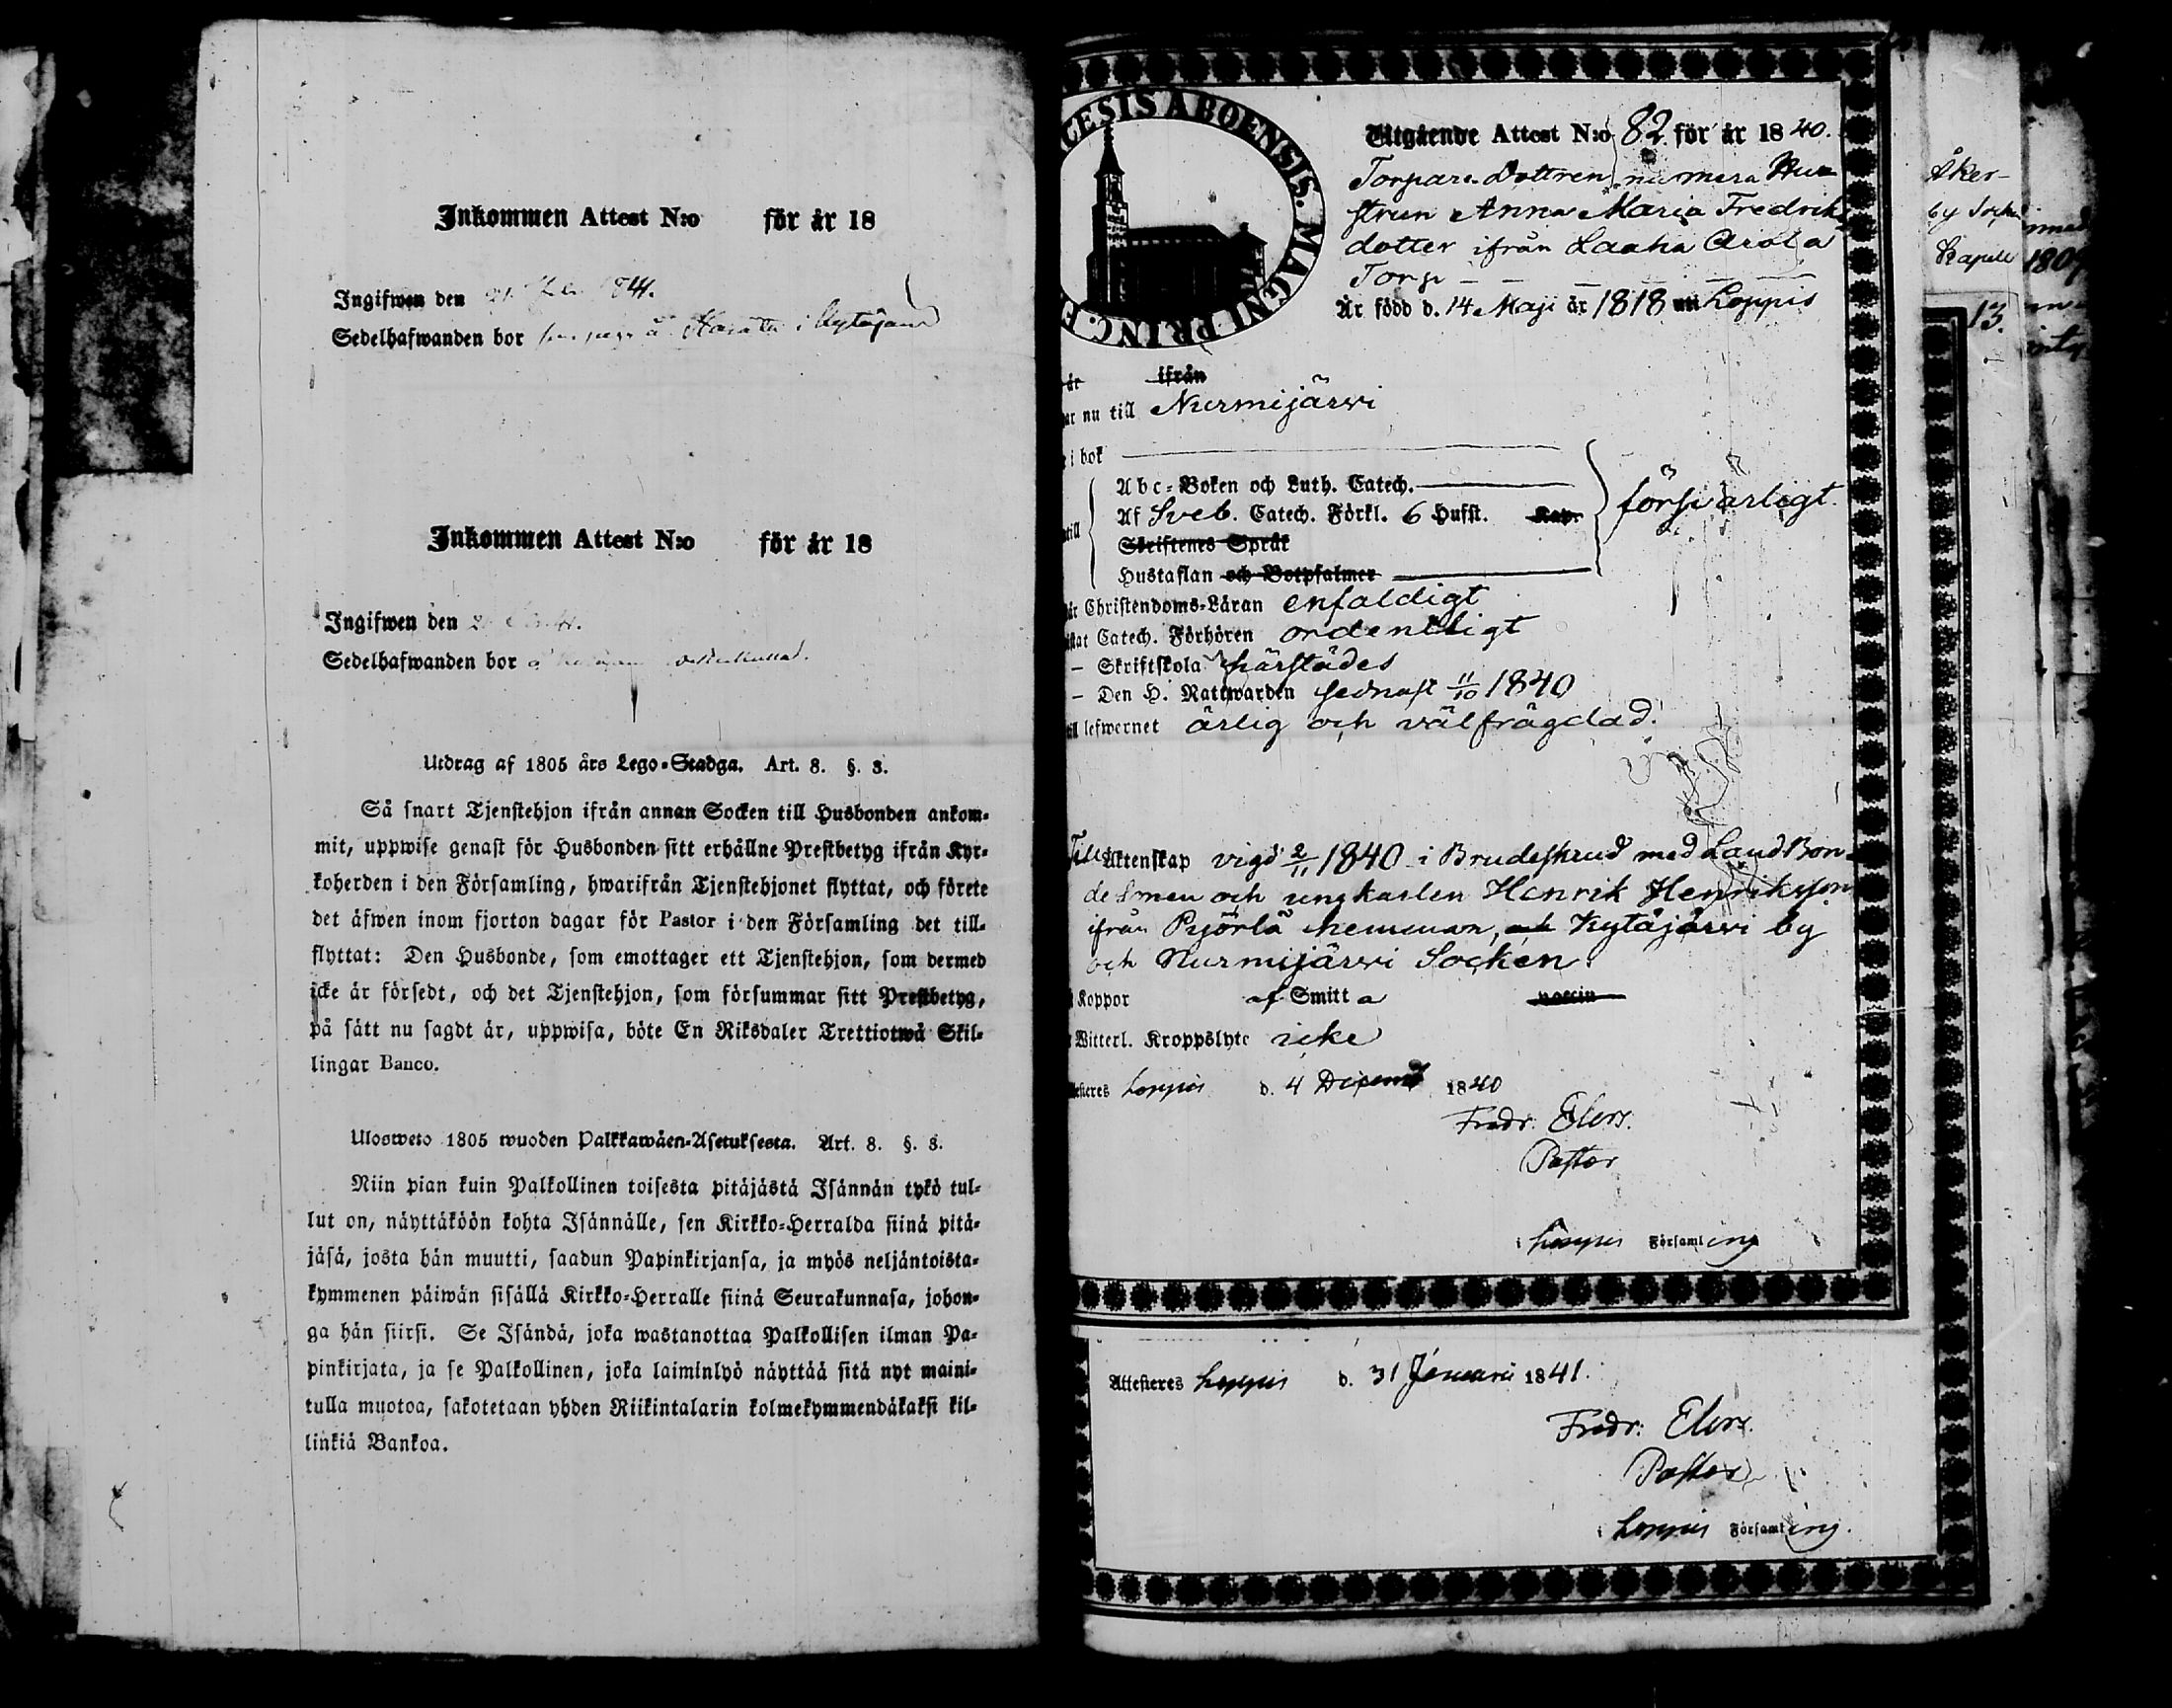 Inkommen Attest N:o för år 18
Ingifwen den 1841.
Sedelhafwanden bor i Kytäjärvi
Inkommen Attest N:o för år 18
Ingifwen den
Sedelhafwanden bor å
Utdrag af 1805 års Lego-Stadga. Art. 8. §. 3.
Så snart Tjenstehjon ifrån annan Socken till Husbonden ankom-
mit, uppwise genast för Husbonden sitt erhållne Prestbetyg ifrån Kyr-
koherden i den Församling, hwarifrån Tjenstehjonet flyttat, och förete
det äfwen inom fjorton dagar för Pastor i den Församling det till-
flyttat: Den Husbonde, som emottager ett Tjenstehjon, som dermed
icke är försedt, och det Tjenstehjon, som försummar sitt Prestbetyg,
på sätt nu sagdt är, uppwisa, böte En Riksdaler Trettiotwå Skil-
lingar Banco.
Ulosweto 1805 wuoden Palkkawäen-Asetuksesta. Art. 8. §. 3.
Niin pian kuin Palkollinen toisesta pitäjästä Isännän tykö tul-
lut on, näyttäköön kohta Isännälle, sen Kirkko-Herralda siinä pitä-
jäsä, josta hän muutti, saadun Papinkirjansa, ja myös neljäntoista-
kymmenen päiwän sisällä Kirkko-Herralle siinä Seurakunnasa, johon-
ga hän siirsi. Se Isändä, joka wastanottaa Palkollisen ilman Pa-
pinkirjata, ja se Palkollinen, joka laiminlyö näyttää sitä nyt maini-
tulla muotoa, sakotetaan yhden Riikintalarin kolmekymmendäkaksi kil-
linkiä Bankoa.
CESIS ABOENSIS. MAGNI PRINC. F
Utgående Attest N:o 82 för år 1840.
Torpare Dottren numera Hu-
strun Anna Maria Fredriks
dotter ifrån Laaha Arola
Torp
Är född d. 14 Maji år 1818 i Loppis
år ifrån
ar nu till Nurmijärvi
i bok
Abc-Boken och Luth. Catech.
Af Sveb. Catech. Förkl. 6 Hufst. Kap.
Skriftenes Språk
Hustaflan och Botpsalmer
försvarligt.
är Christendoms-Läran enfaldigt
istat Catech. Förhören ordentligt
– Skriftskola härstädes
– Den H. Nattwarden sednast 11/10 1840
till lefwernet ärlig och välfrägdad.
Till Äktenskap vigd 2/11 1840 i Brudeskrud med LandBon-
de Sonen och ungkarlen Henrik Henriksson
ifrån Pyörlä hemman, Kytäjärvi by
och Nurmijärvi Socken.
Koppor af Smitta vaccin
Witterl. Kroppslyte icke
Attesteres Loppis d. 4 Decemb 1840
Fredr: Elers.
Pastor
i Loppis Församling
Attesteres Loppis d. 31 Januari 1841.
Fredr: Elers.
Pastor
i Loppis Församling.
Åker-
by Socken
Kapell
13.
180